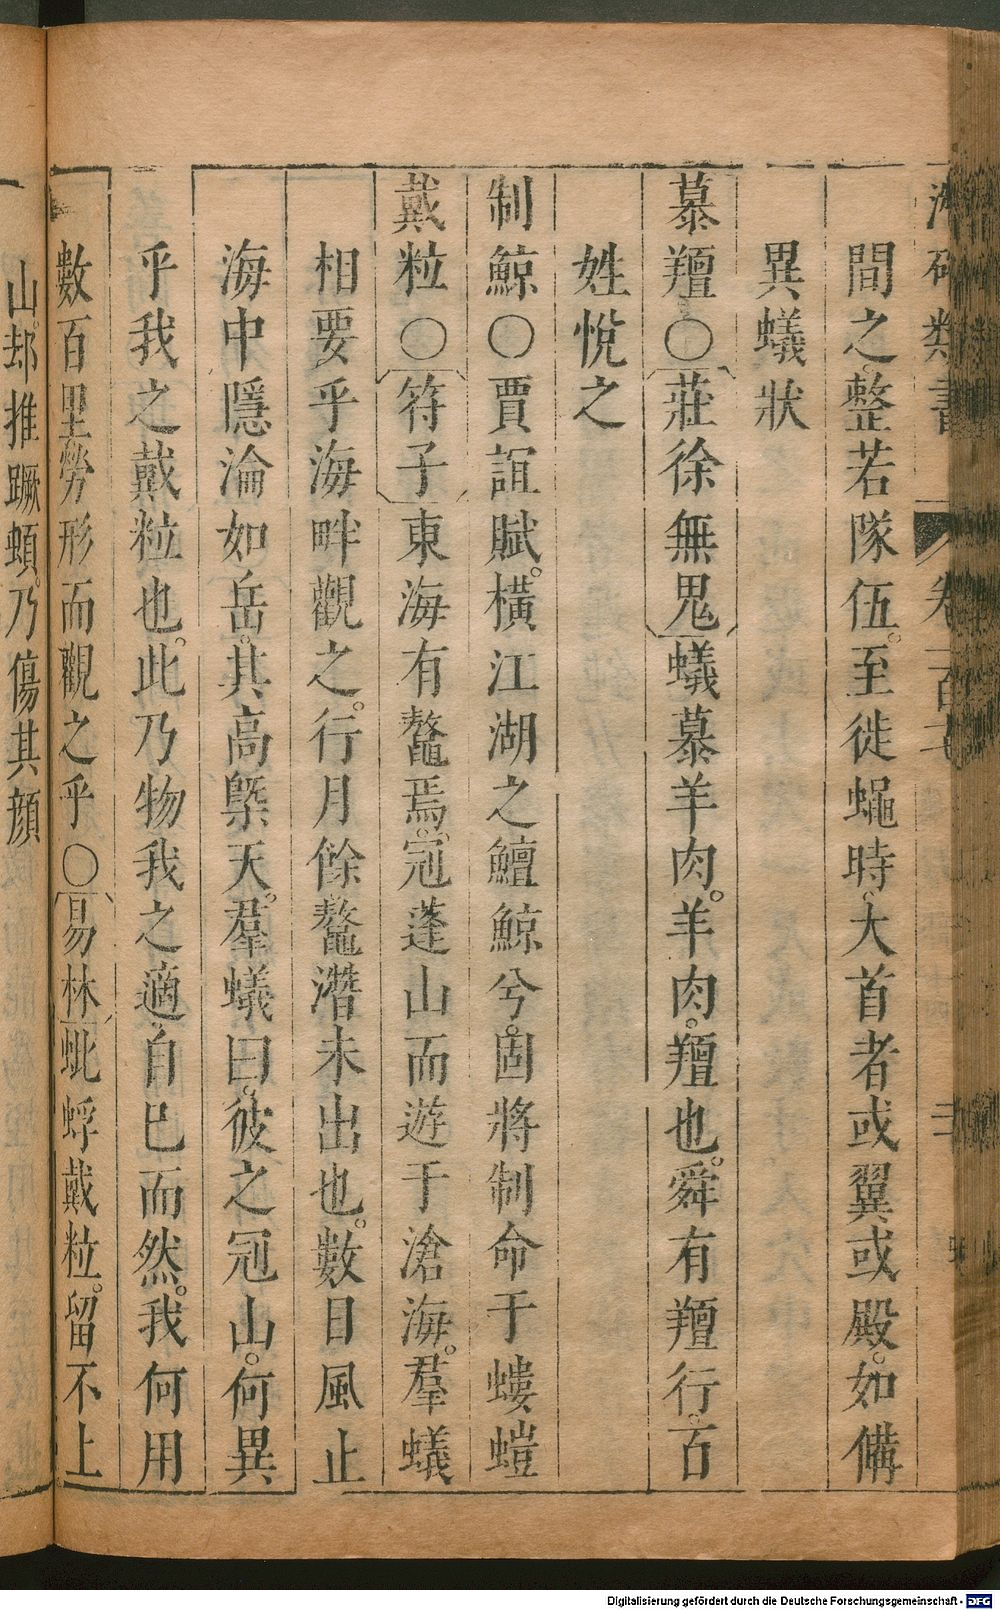 類書 卷一百
間之整若隊伍。至徙蠅時。大首者或翼或殿。如備
異蟻狀
慕羶〇莊徐無鬼蟻慕羊肉。羊肉。羶也。舜有羶行。百
姓悅之
制鯨〇賈誼賦。橫江湖之鱣鯨兮。固將制命于螻螘
戴粒〇符子東海有鼇焉。冠蓬山而遊于滄海。羣蟻
相要乎海畔觀之。行月餘鼇潛未出也。數日風止
海中隱淪如岳。其高槩天。羣蟻曰。彼之冠山。何異
乎我之戴粒也。此乃物我之適。自已而然。我何用
數百里勞形而觀之乎〇易林蚍蜉戴粒。留不上
山。却推蹶蝢。乃傷其顏
Digitalisierung gefördert durch die Deutsche Forschungsgemeinschaft - DFG